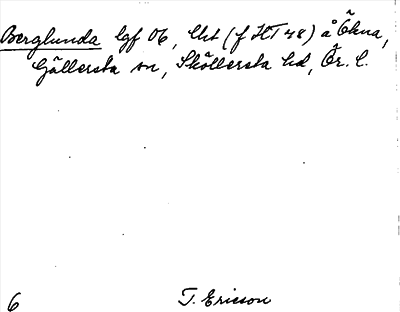 Berglunda lgf 06, lht (f HT 48) å Ökna,
Gällersta sn, Sköllersta hd, Ör. l.
6 T. Ericson